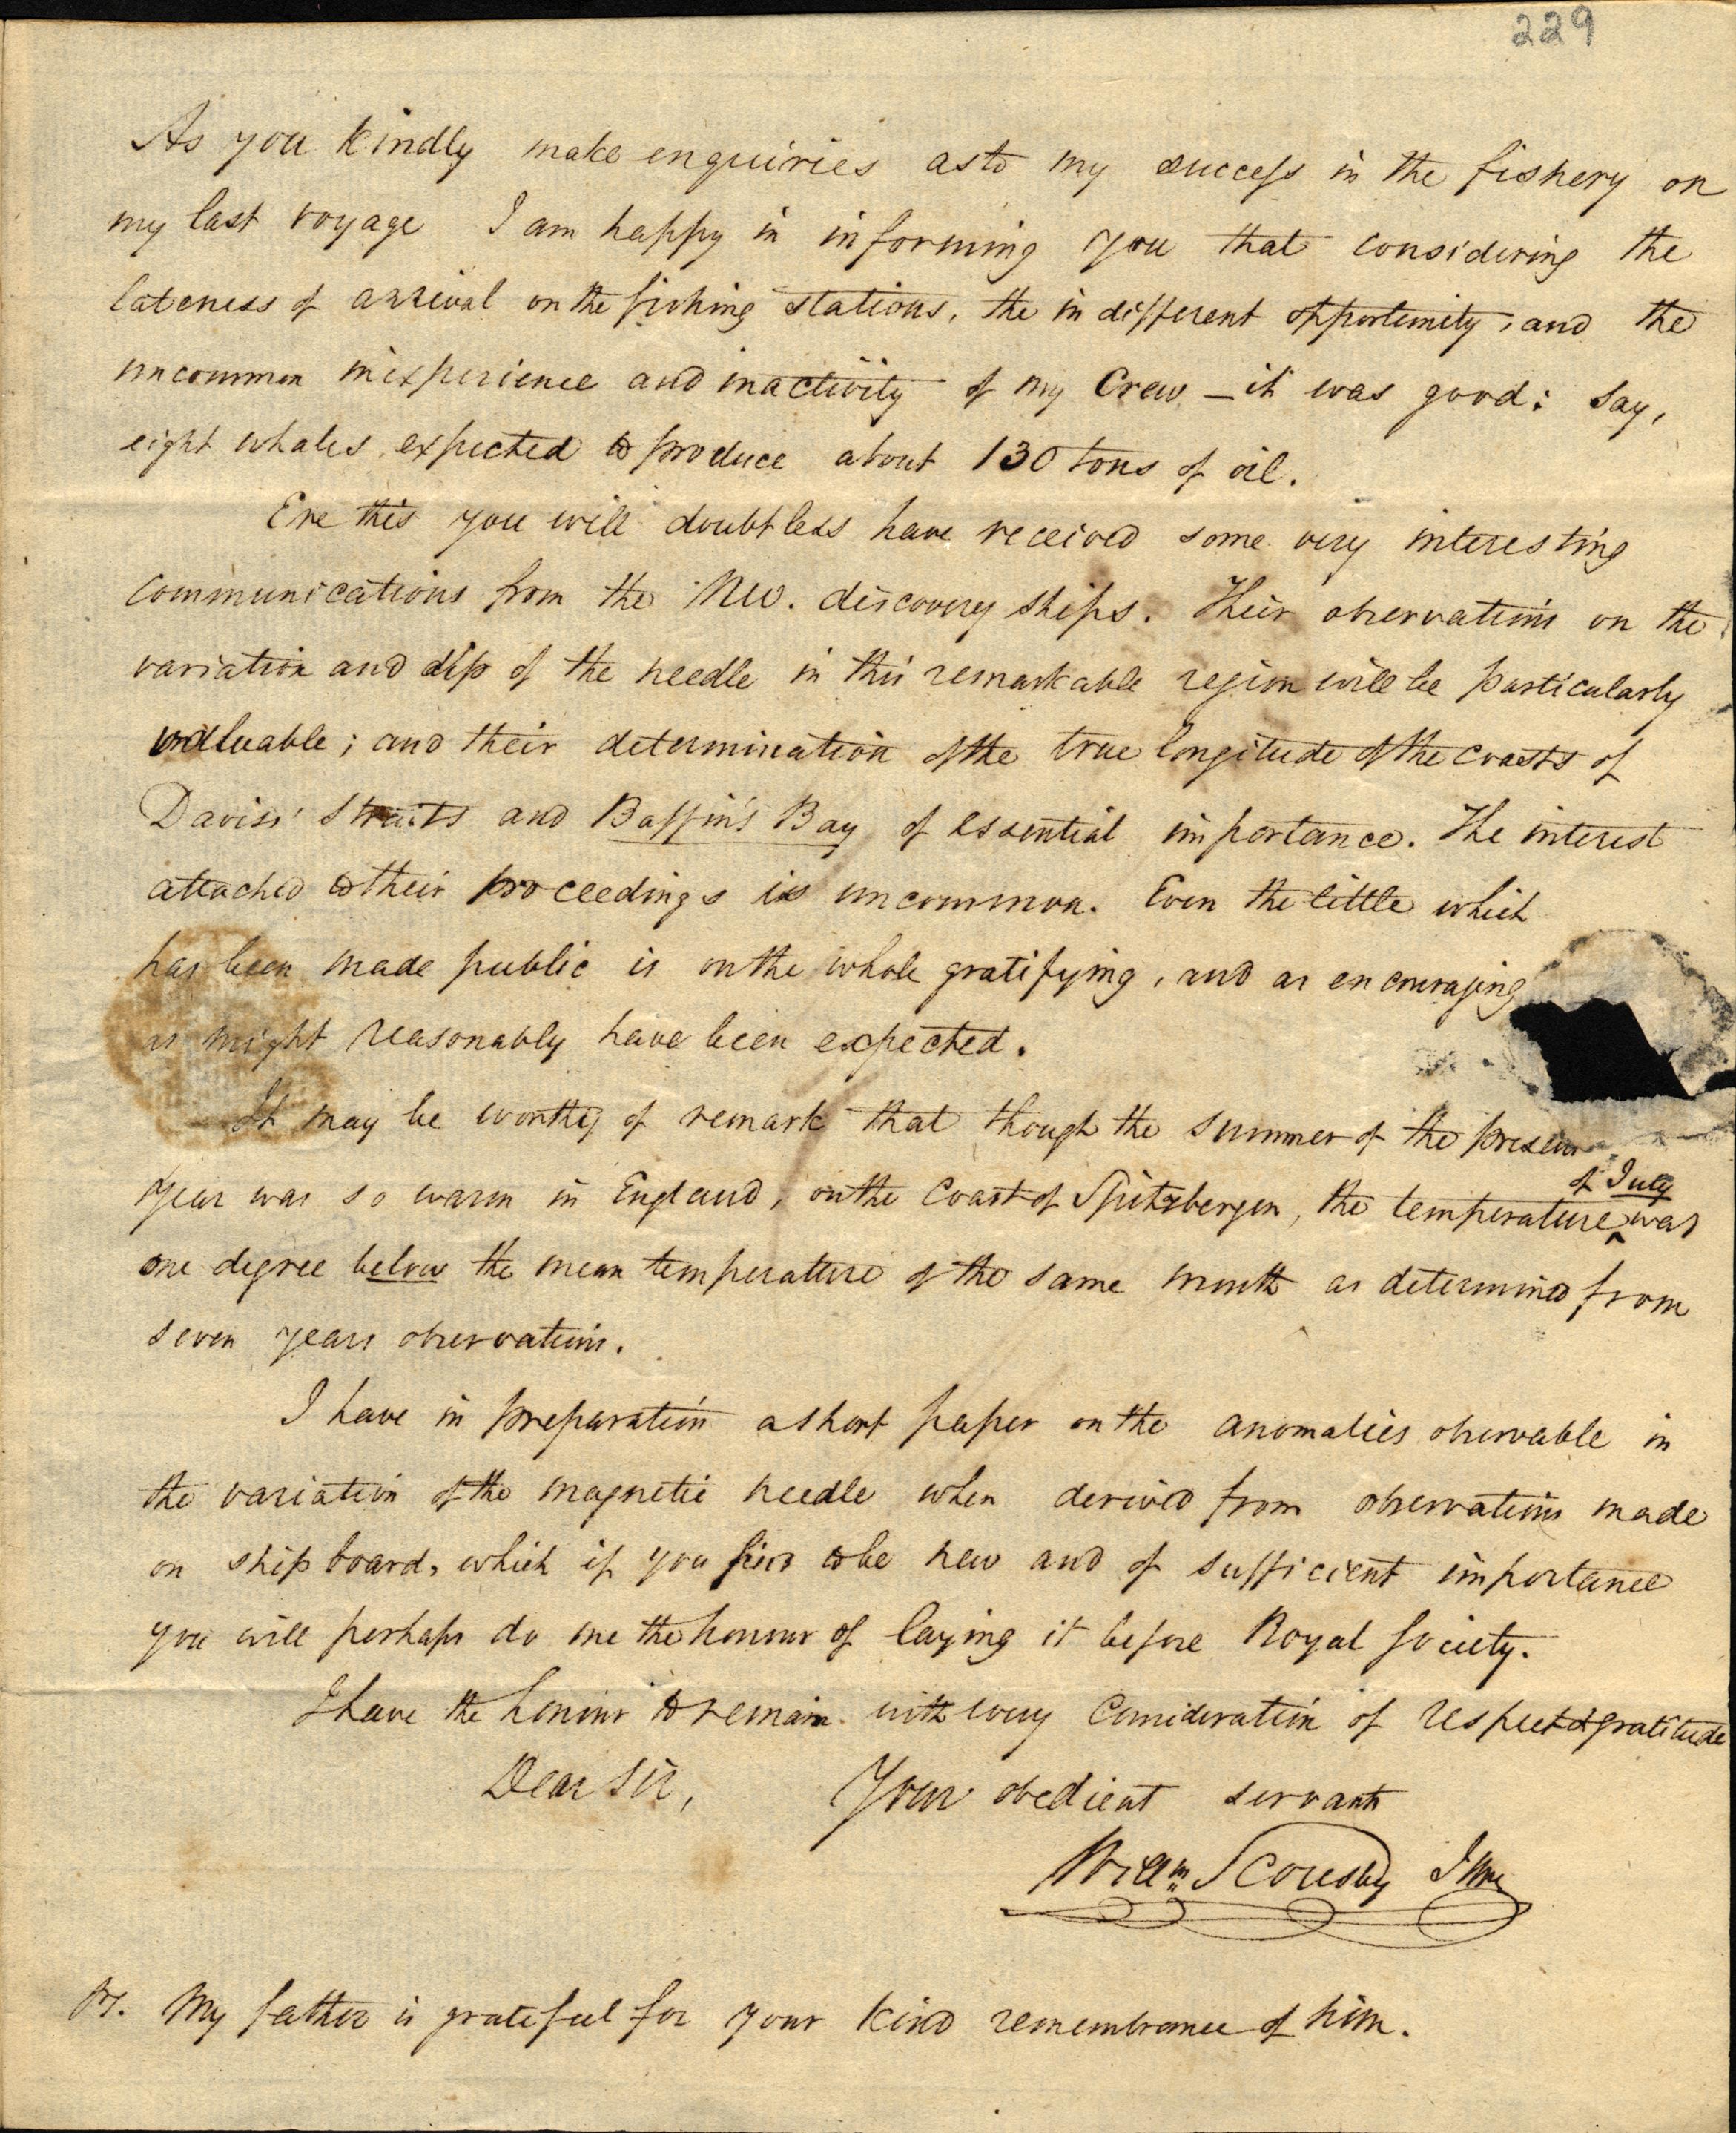 229
As you kindly make enquiries as to my success in the fishery on
my last voyage I am happy in informing you that considering the
lateness of arrival on the fishing stations, the indifferent opportunity, and the
uncommon inexperience and inactivity of my Crew – it was good: say,
eight whales expected to produce about 130 tons of oil.
Ere this you will doubtless have received some very interesting
communications from the NW. discovery ships. Their observations on the
variation and dip of the needle in this remarkable region will be particularly
valuable; and their determination of the true longitude of the coasts of
Davis' Straits and Baffin's Bay of essential importance. The interest
attached to their proceedings is uncommon. Even the little which
has been made public is on the whole gratifying, and as encouraging
as might reasonably have been expected.
It may be worthy of remark that though the summer of the present
of July
year was so warm in England, on the coast of Spitzbergen, the temperature ^ was
one degree below the mean temperature of the same month as determined from
seven years observations.
I have in preparation a short paper on the anomalies observable in
the variation of the magnetic needle when derived from observations made
on ship board, which if you find to be new and of sufficient importance
you will perhaps do me the honour of laying it before Royal Society.
I have the honour to remain with every Consideration of respect & gratitude
Dear Sir, Your obedient servant
Willm Scoresby Junr
PS. My father is grateful for your kind remembrance of him.